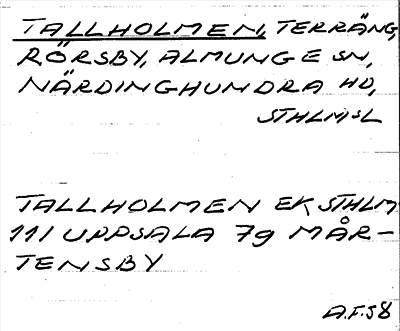 TALLHOLMEN, TERRÄNG,
RÖRSBY, ALMUNGE SN,
NÄRDINGHUNDRA HD,
STHLMSL
TALLHOLMEN EK STHLM
111 UPPSALA 7g MÅR-
TENSBY
A.F.58